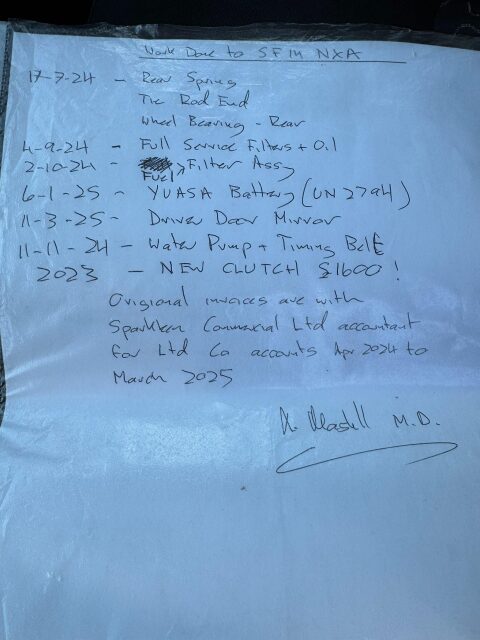 Work Done to SF14 NXA
17-7-24 - Rear Spring
Tie Rod End
Wheel Bearing - Rear
4-9-24 - Full Service Filters + Oil
2-10-24 - Fuel > Filter Assy
6-1-25 - YUASA Battery (UN2794)
11-3-25 - Driver Door Mirror
11-11-24 - Water Pump + Timing Belt
2023 - NEW CLUTCH £1600 !
Origional invoices are with
Commercial Ltd accountant
for Ltd Co accounts Apr 2024 to
March 2025
M.D.